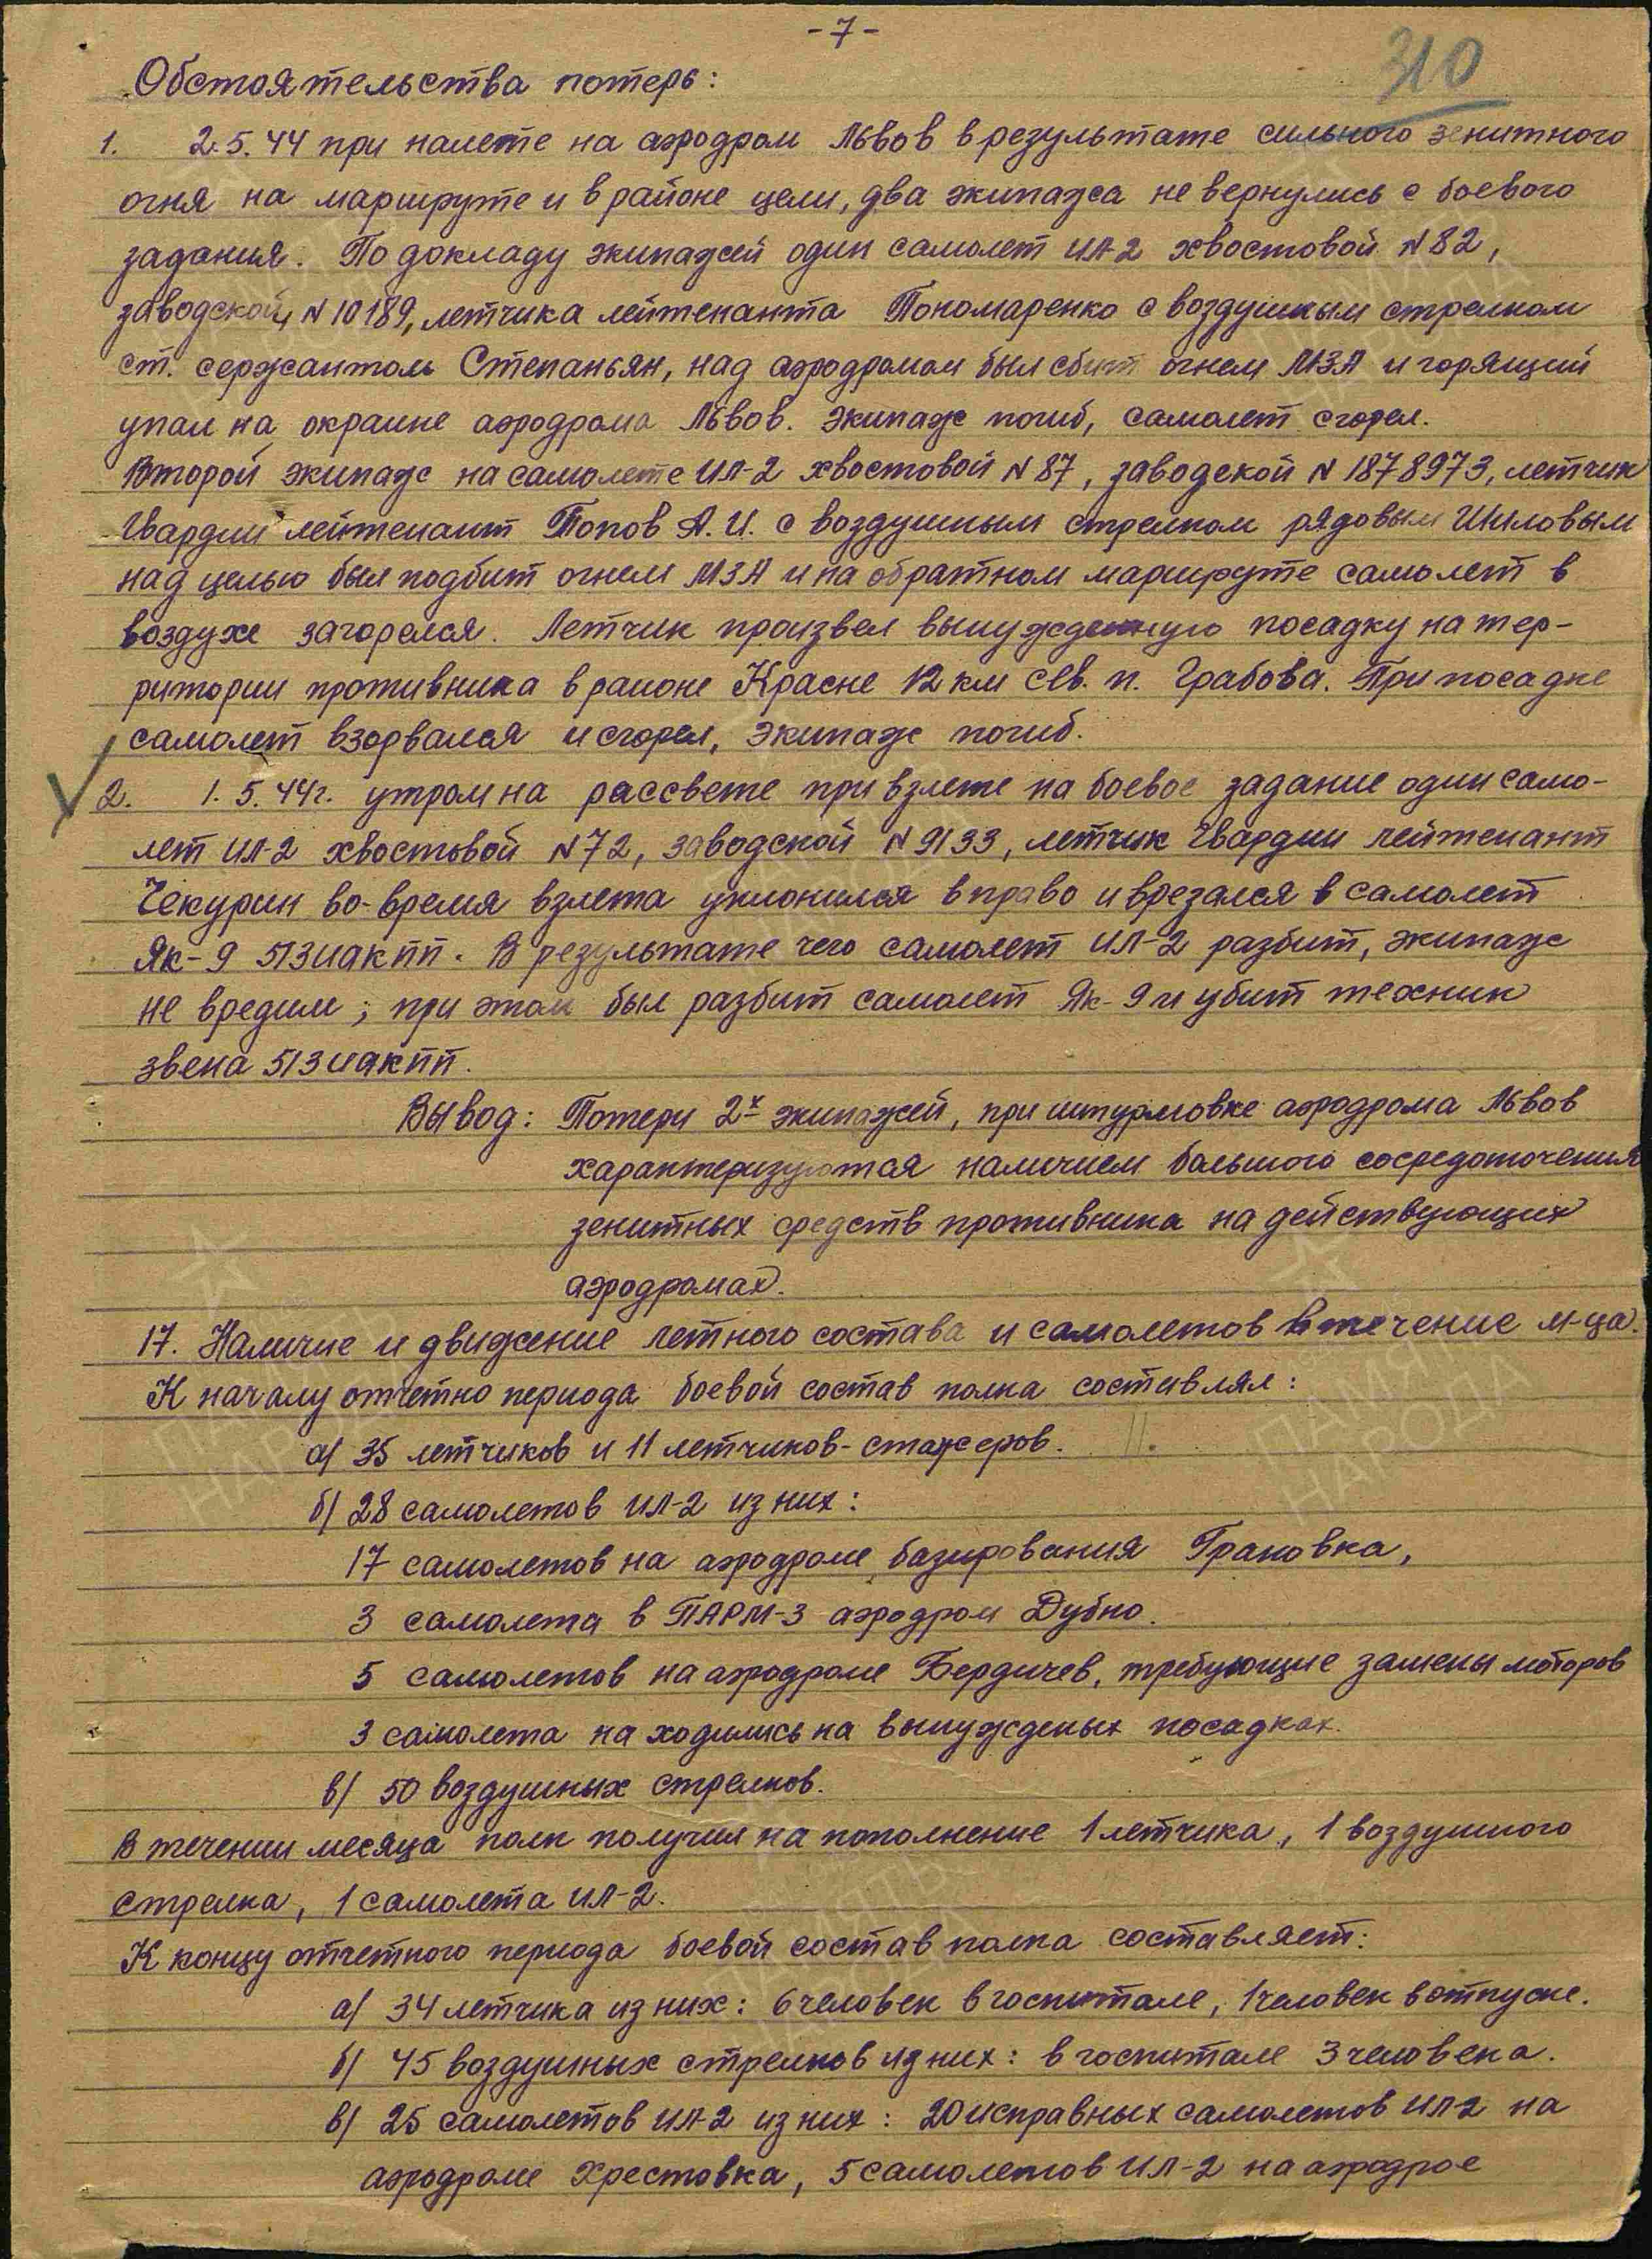 -7-
310
Обстоятельства потерь:
1. 2.5.44 при налете на аэродром Львов в результате сильного зенитного
огня на маршруте и в районе цели, два экипажа не вернулись с боевого
задания. По докладу экипажей один самолет ИЛ-2 хвостовой N 82,
заводской N 10189, летчика лейтенанта Пономаренко с воздушным стрелком
ст. сержантом Степаньян, над аэродромом был сбит огнем МЗА и горящий
упал на окраине аэродрома Львов. Экипаж погиб, самолет сгорел.
Второй экипаж на самолете ИЛ-2 хвостовой N 87, заводской N 1878973, летчик
Гвардии лейтенант Попов А.И. с воздушным стрелком рядовым Шиловым
над целью был подбит огнем МЗА и на обратном маршруте самолет в
воздухе загорелся. Летчик произвел вынужденную посадку на тер-
ритории противника в районе Красне 12 км сев. п. Грабова. При посадке
самолет взорвался и сгорел, экипаж погиб.
2. 1.5.44г. утром на рассвете при взлете на боевое задание один само-
лет ИЛ-2 хвостовой N 72, заводской N 9133, летчик Гвардии лейтенант
Чекурин во-время взлета уклонился вправо и врезался в самолет
Як-9 513 иакпп. В результате чего самолет ИЛ-2 разбит, экипаж
не вредим; при этом был разбит самолет Як-9 и убит техник
звена 513 иакпп.
Вывод: Потери 2х экипажей, при штурмовке аэродрома Львов
характеризуются наличием большого сосредоточения
зенитных средств противника на действующих
аэродромах.
17. Наличие и движение летного состава и самолетов в течение м-ца.
К началу отчетно периода боевой состав полка составлял:
а) 35 летчиков и 11 летчиков-стажеров.
б) 28 самолетов ИЛ-2 из них:
17 самолетов на аэродроме базирования Грановка,
3 самолета в ПАРМ-3 аэродром Дубно.
5 самолетов на аэродроме Бердичев, требующие замены моторов
3 самолета находились на вынужденых посадках.
в) 50 воздушных стрелков.
В течении месяца полк получил на пополнение 1 летчика, 1 воздушного
стрелка, 1 самолета ИЛ-2.
К концу отчетного периода боевой состав полка составляет:
а) 34 летчика из них: 6 человек в госпитале, 1 человек в отпуске.
б) 45 воздушных стрелков из них: в госпитале 3 человека.
в) 25 самолетов ИЛ-2 из них: 20 исправных самолетов ИЛ-2 на
аэродроме Хрестовка, 5 самолетов ИЛ-2 на аэродрое
ПАМЯТЬ НАРОДА